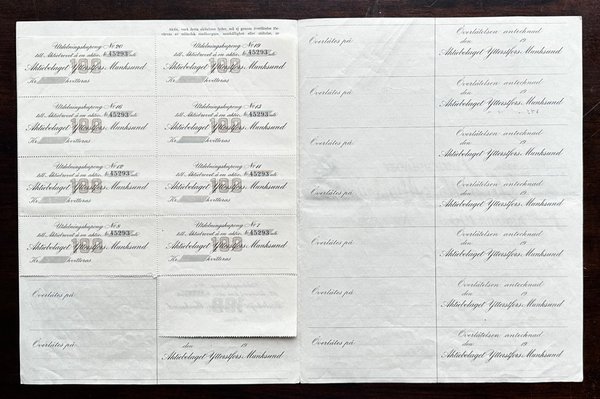 Utdelningskupong No 20
till Aktiebrevet å en aktie No 45293
Aktiebolaget Ytterstfors-Munksund
100
Kr. kvitteras
Utdelningskupong No 19
till Aktiebrevet å en aktie No 45293
Aktiebolaget Ytterstfors-Munksund
100
Kr. kvitteras
Utdelningskupong No 16
till Aktiebrevet å en aktie No 45293
Aktiebolaget Ytterstfors-Munksund
100
Kr. kvitteras
Utdelningskupong No 15
till Aktiebrevet å en aktie No 45293
Aktiebolaget Ytterstfors-Munksund
100
Kr. kvitteras
Utdelningskupong No 12
till Aktiebrevet å en aktie No 45293
Aktiebolaget Ytterstfors-Munksund
100
Kr. kvitteras
Utdelningskupong No 11
till Aktiebrevet å en aktie No 45293
Aktiebolaget Ytterstfors-Munksund
100
Kr. kvitteras
Utdelningskupong No 8
till Aktiebrevet å en aktie No 45293
Aktiebolaget Ytterstfors-Munksund
100
Kr. kvitteras
Utdelningskupong No 7
till Aktiebrevet å en aktie No 45293
Aktiebolaget Ytterstfors-Munksund
100
Kr. kvitteras
Överlåtes på
Överlåtes på
den 19
Aktiebolaget Ytterstfors-Munksund
Överlåtes på
Överlåtelsen antecknad
den 19
Aktiebolaget Ytterstfors-Munksund
Överlåtes på
Överlåtelsen antecknad
den 19
Aktiebolaget Ytterstfors-Munksund
Överlåtes på
Överlåtelsen antecknad
den 19
Aktiebolaget Ytterstfors-Munksund
Överlåtes på
Överlåtelsen antecknad
den 19
Aktiebolaget Ytterstfors-Munksund
Överlåtes på
Överlåtelsen antecknad
den 19
Aktiebolaget Ytterstfors-Munksund
Överlåtes på
Överlåtelsen antecknad
den 19
Aktiebolaget Ytterstfors-Munksund
Överlåtes på
Överlåtelsen antecknad
den 19
Aktiebolaget Ytterstfors-Munksund